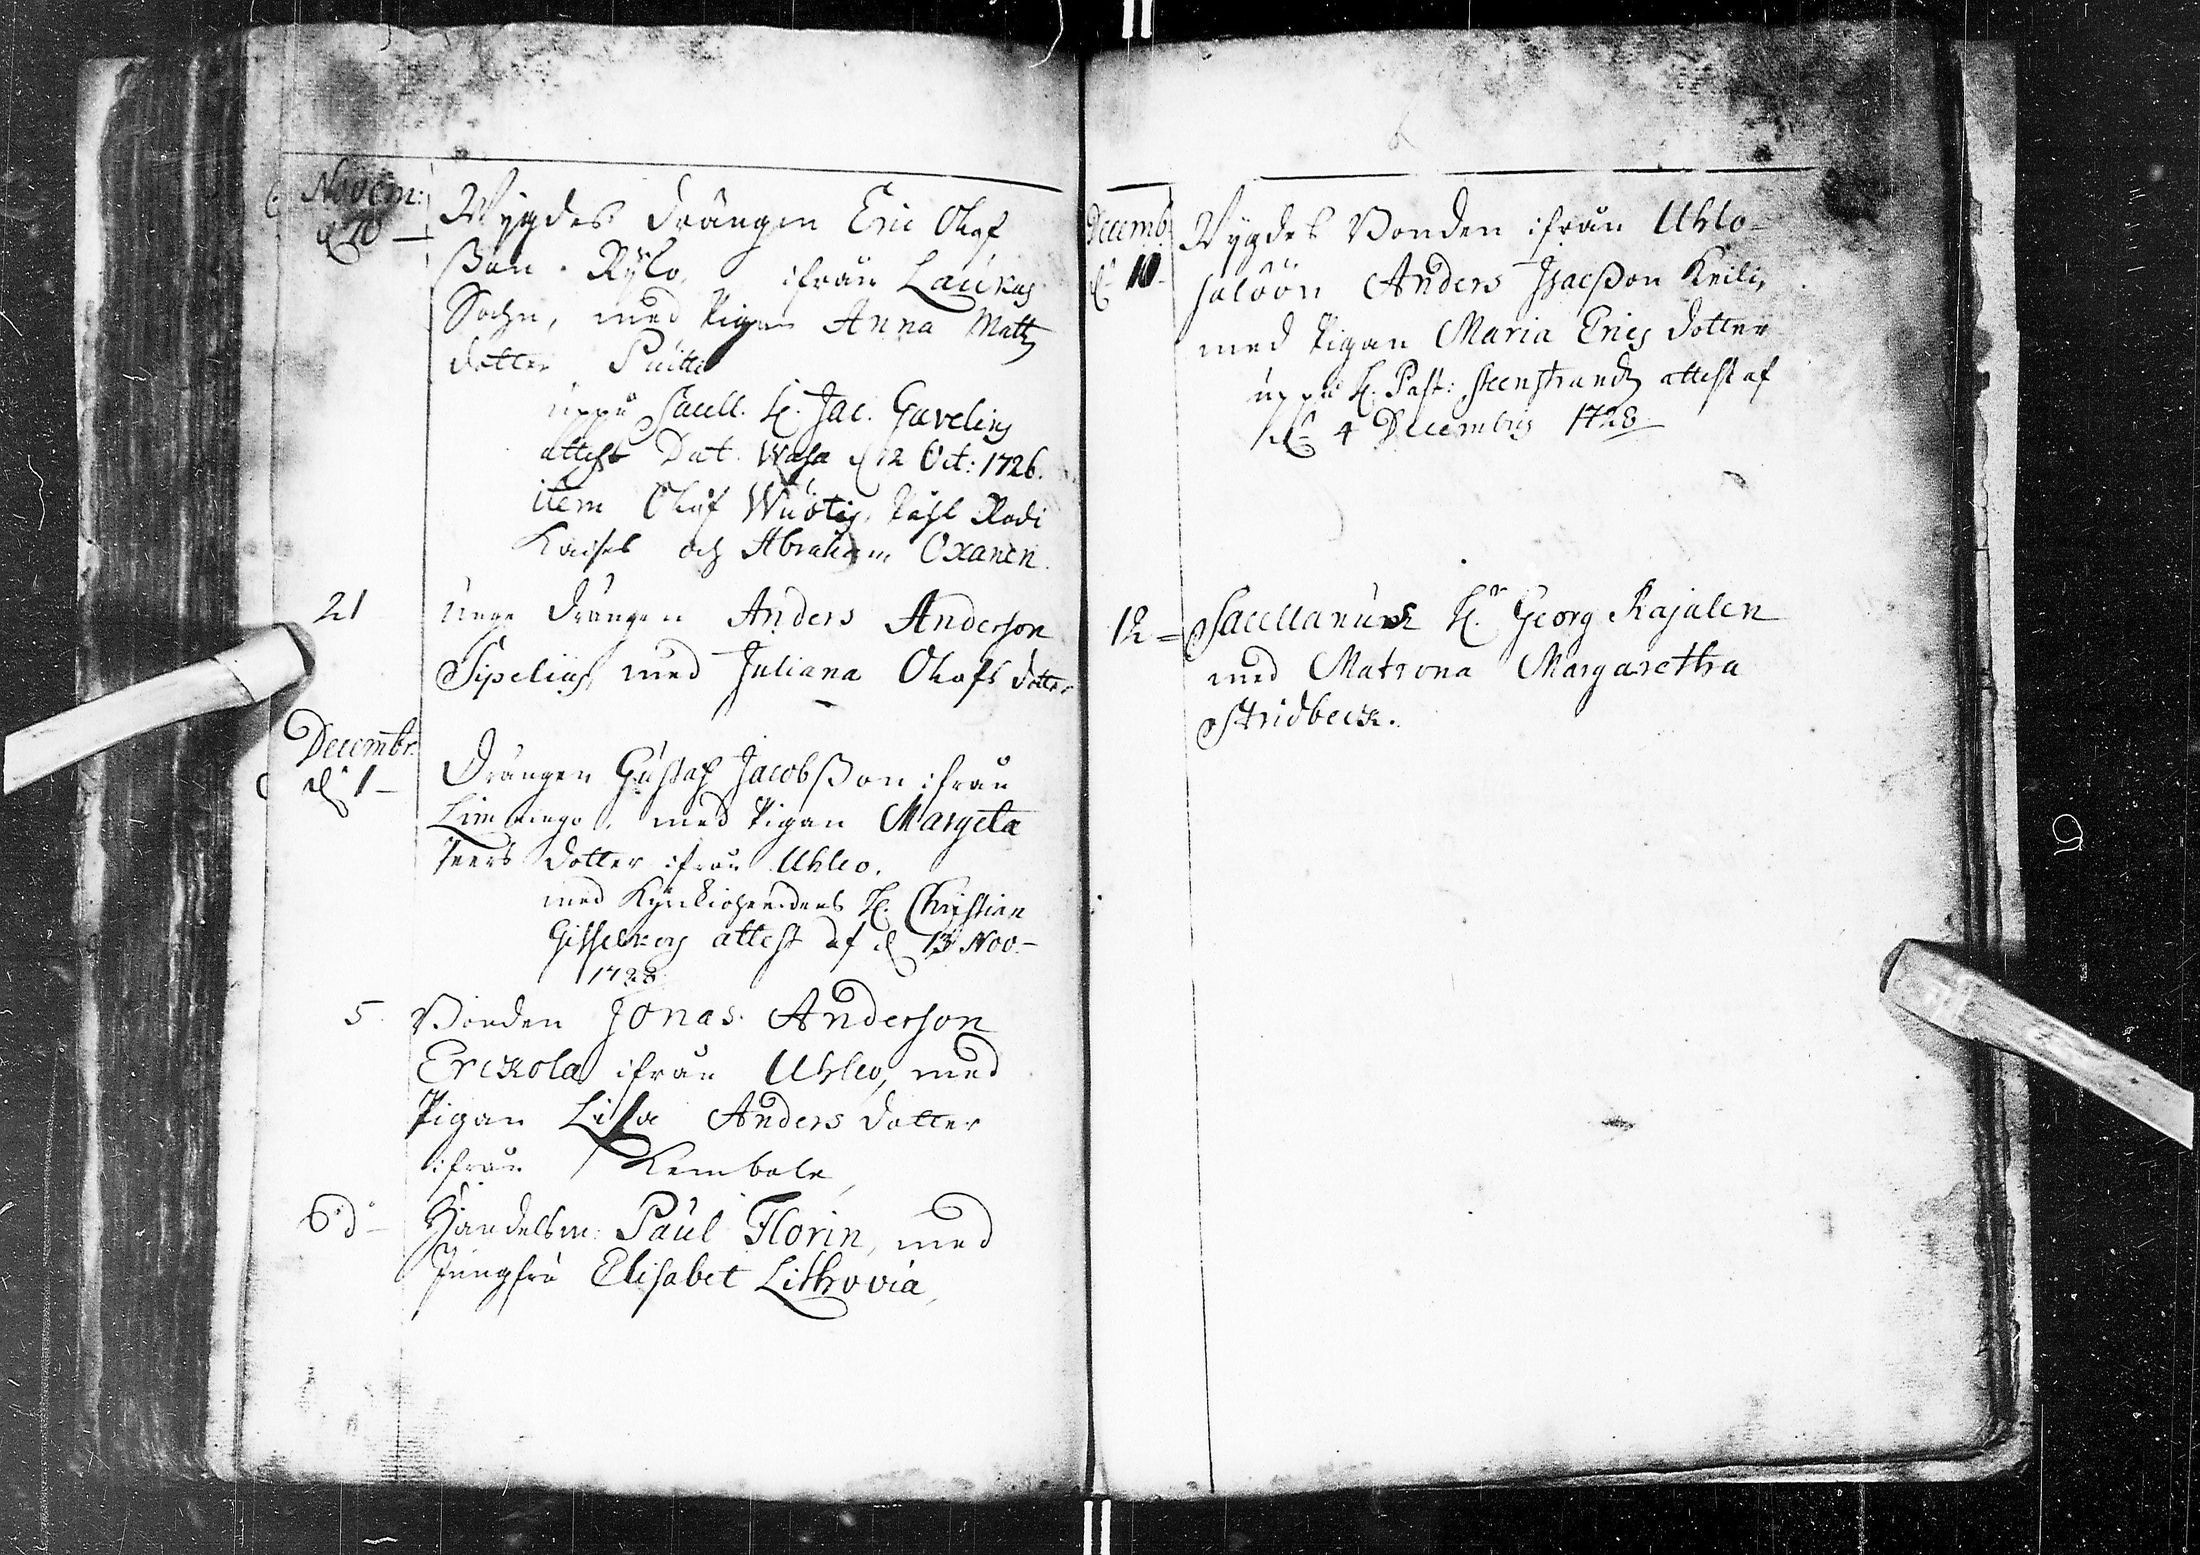 Novem:
d 20 —
Wygdes drängen Eric Olof
ßon Rÿlo, ifrån Laukas
Sochn, med Pigan Anna Matts
dotter Puitti
uppå Sacell. H. Jac. Gavelius
attest Dat. Wasa d 12 Oct: 1726.
item Olof Påhl
och Abraham Oxanen.
21 Unge drängen Anders Anderson
Sipelius, med Juliana Olofs dotter
Decembr.
dn 1 —
Drängen Gustaf Jacobßon ifrån
Limmingo, med Pigan Margeta
Peers dotter ifrån Uhleo.
med Kyrckioherdens H. Christian
attest af d 13 Nov.
1728
5. Bonden Jonas Anderson
Erckola ifrån Uhleo, med
Pigan Lisa Anders dotter
ifrån Kembele
6 d — Handelsm: Paul Florin, med
Jungfru Elisabet Lithovia,
Decemb.
d 10 —
Wygdes Bonden ifrån Uhlo-
saloön Anders Isacßon
med Pigan Maria Erics dotter
uppå H. Past: attest af
d 4 Decembris 1728
12 = Sacellanus Hr Georg Rajalen
med Matrona Margaretha
Stridbeck.